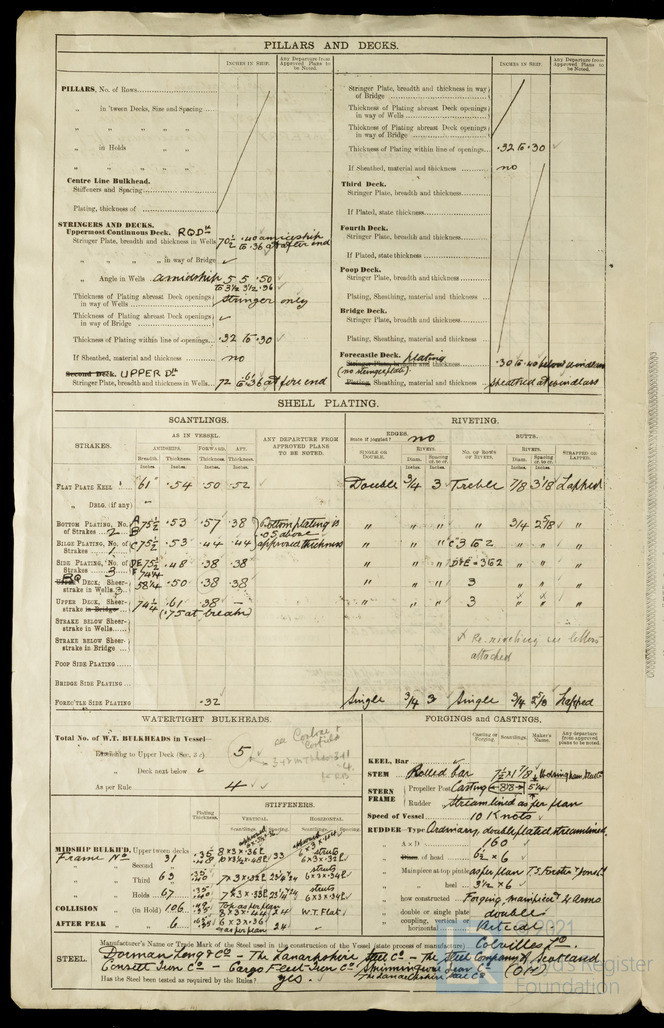 PILLARS AND DECKS.
INCHES IN SHIP.
Any Departure from Approved Plans to be Noted.
INCHES IN SHIP.
Any Departure from Approved Plans to be Noted.
PILLARS, No. of Rows
„ in 'tween Decks, Size and Spacing
„ „ „ „ „
„ in Holds „ „
„ „ „ „ „
Centre Line Bulkhead.
Stiffeners and Spacing
Plating, thickness of
STRINGERS AND DECKS.
Uppermost Continuous Deck. RQDk
Stringer Plate, breadth and thickness in Wells 70½ .40 amidship to .36 aft after end
„ „ „ in way of Bridge ✓
„ Angle in Wells amidship 5 5 .50 to 3½ 3½ .36
Thickness of Plating abreast Deck openings in way of Wells stringer only
Thickness of Plating abreast Deck openings in way of Bridge ✓
Thickness of Plating within line of openings .32 to .30 ✓
If Sheathed, material and thickness no
Second Deck. UPPER Dk
Stringer Plate, breadth and thickness in Wells 72 .61 to .36 at fore end
Stringer Plate, breadth and thickness in way of Bridge
Thickness of Plating abreast Deck openings in way of Wells
Thickness of Plating abreast Deck openings in way of Bridge
Thickness of Plating within line of openings .32 to .30 ✓
If Sheathed, material and thickness no
Third Deck.
Stringer Plate, breadth and thickness
If Plated, state thickness
Fourth Deck.
Stringer Plate, breadth and thickness
If Plated, state thickness
Poop Deck.
Stringer Plate, breadth and thickness
Plating, Sheathing, material and thickness
Bridge Deck.
Stringer Plate, breadth and thickness
Plating, Sheathing, material and thickness
Forecastle Deck. plating
Stringer Plate, breadth and thickness .30 to .40 below windlass
(no stringer plate)
Plating, Sheathing, material and thickness sheathed at windlass
SHELL PLATING.
SCANTLINGS.
RIVETING.
STRAKES.
AS IN VESSEL.
ANY DEPARTURE FROM APPROVED PLANS TO BE NOTED.
EDGES.
State if joggled? no
BUTTS.
AMIDSHIPS.
FORWARD.
AFT.
SINGLE OR DOUBLE.
RIVETS.
NO. OF ROWS OF RIVETS.
RIVETS.
STRAPPED OR LAPPED.
Breadth. Thickness. Thickness. Thickness.
Diam. Spacing cr. to cr.
Diam. Spacing cr. to cr.
FLAT PLATE KEEL 61 .54 .50 .52 Double ¾ 3 Treble 7/8 3 1/8 Lapped
„ DBLG. (if any) –
BOTTOM PLATING, No. of Strakes 2 A B 75½ .53 .57 .38 bottom plating is .05 above approved thickness „ „ „ „ ¾ 2 5/8 „
BILGE PLATING, No. of Strakes 1 C 75½ .53 .44 .44 „ „ „ C 3 to 2 „ „ „
SIDE PLATING, No. of Strakes 3 DE 75½ F 74¼ .48 .38 .38 „ „ „ D&E = 3 to 2 „ „ „
UPPER DECK, Sheerstrake in Wells RQ 58¼ .50 .38 .38 „ „ „ 3 „ „ „
UPPER DECK, Sheerstrake in Bridge 74¼ .61 .38 – (.75 at break) „ „ „ 3 „ „ „
STRAKE BELOW Sheerstrake in Wells
STRAKE BELOW Sheerstrake in Bridge
x Re-riveting see letters attached
POOP SIDE PLATING
BRIDGE SIDE PLATING
FORECTLE SIDE PLATING .32 Single ¾ 3 Single ¾ 2 5/8 Lapped
WATERTIGHT BULKHEADS.
Total No. of W.T. BULKHEADS in Vessel—
Extending to Upper Deck (Sec. 3 c) 5
„ Deck next below ✓
As per Rule 4 ✓
Plating Thickness.
STIFFENERS.
VERTICAL.
HORIZONTAL.
Scantlings. Spacing.
Scantlings. Spacing.
MIDSHIP BULKH'D. Upper tween decks
Frame No 31
„ Second „
„ Third „ 63
„ Holds 67
COLLISION „ (in Hold) 106 W.T. Flat
AFTER PEAK „ 6 24
FORGINGS and CASTINGS.
Casting or Forging.
Scantlings.
Maker's Name.
Any departure from approved plans to be noted.
KEEL, Bar
STEM Rolled bar 7½ x 1 7/8
STERN FRAME
Propeller Post Casting
Rudder „ streamlined as per plan
Speed of Vessel 10 Knots
RUDDER—Type Ordinary, double plated streamlined
A x D 160
Diam. of head 6½ x 6
„ Mainpiece at top pintle as per plan
„ „ heel 3½ x 6 ✓
„ how constructed Forging, mainpiece & arms
„ double or single plate double
„ vertical horizontal vertical
STEEL.
Manufacturer's Name or Trade Mark of the Steel used in the construction of the Vessel (state process of manufacture) Colvilles Ld
Dorman Long & Co – The Lanarkshire Steel Co – The Steel Company of Scotland
Consett Iron Co – Cargo Fleet Iron Co Skinningrove Iron Co (OH)
The Lanarkshire Steel Co
Has the Steel been tested as required by the Rules? yes.
2021
Lloyd's Register
Foundation